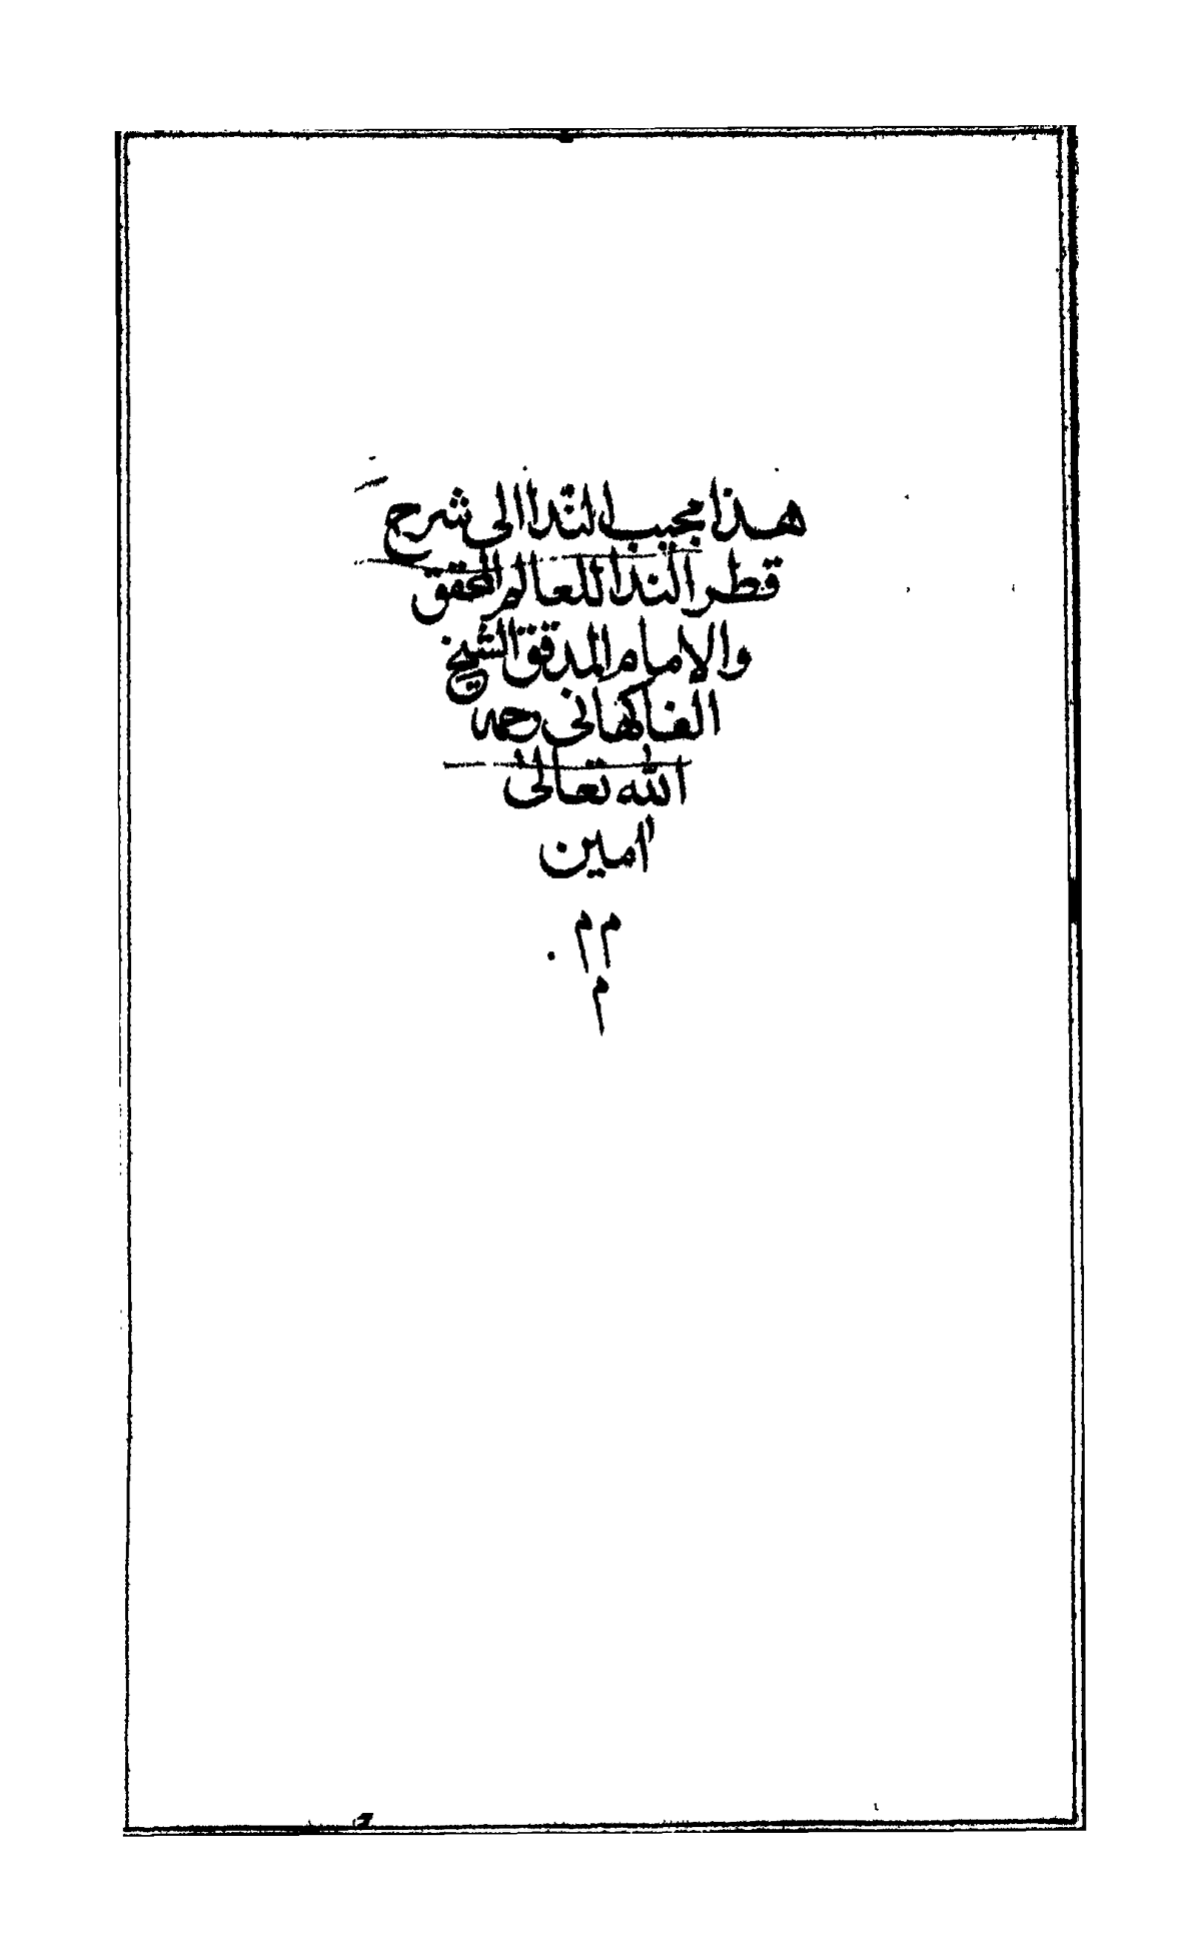 هذا مجيب النّدا الى شرح
قطر الندا للعالم المحقق
والامام المدقق الشيخ
الفاكهانى رحمه
الله تعالى
امين
م م
م